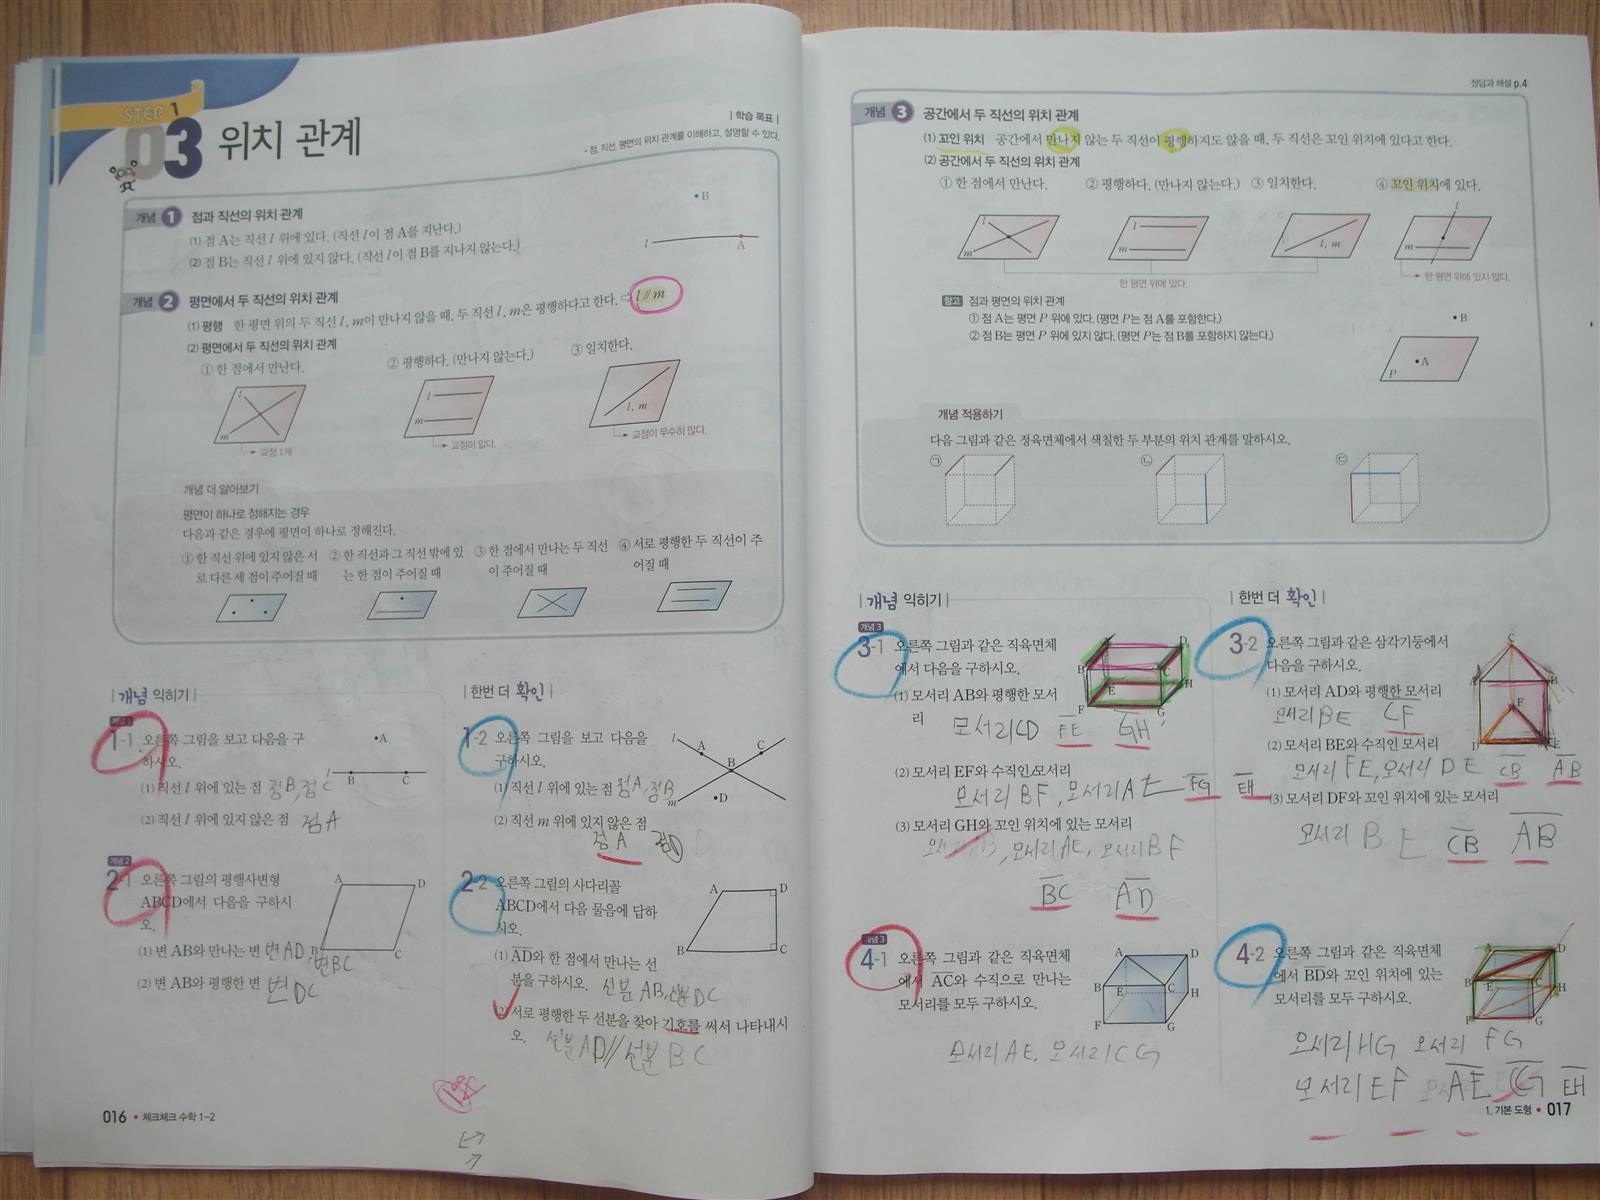 STEP 1
03 위치 관계
| 학습 목표 |
• 점, 직선, 평면의 위치 관계를 이해하고, 설명할 수 있다.
개념 1 점과 직선의 위치 관계
(1) 점 A는 직선 l 위에 있다. (직선 l이 점 A를 지난다.)
(2) 점 B는 직선 l 위에 있지 않다. (직선 l이 점 B를 지나지 않는다.)
B
l A
개념 2 평면에서 두 직선의 위치 관계
(1) 평행 한 평면 위의 두 직선 l, m이 만나지 않을 때, 두 직선 l, m은 평행하다고 한다. ⇨ l // m
(2) 평면에서 두 직선의 위치 관계
① 한 점에서 만난다. ② 평행하다. (만나지 않는다.) ③ 일치한다.
l m l m l, m
교점 1개 교점이 없다. 교점이 무수히 많다.
개념 더 알아보기
평면이 하나로 정해지는 경우
다음과 같은 경우에 평면이 하나로 정해진다.
① 한 직선 위에 있지 않은 서 ② 한 직선과 그 직선 밖에 있 ③ 한 점에서 만나는 두 직선 ④ 서로 평행한 두 직선이 주
로 다른 세 점이 주어질 때 는 한 점이 주어질 때 이 주어질 때 어질 때
| 개념 익히기 |
개념 1
1-1 오른쪽 그림을 보고 다음을 구
하시오.
A
l B C
(1) 직선 l 위에 있는 점 점B, 점C
(2) 직선 l 위에 있지 않은 점 점A
개념 2
2-1 오른쪽 그림의 평행사변형
ABCD에서 다음을 구하시
오.
A D
B C
(1) 변 AB와 만나는 변 변AD,
변BC
(2) 변 AB와 평행한 변 변DC
| 한번 더 확인 |
1-2 오른쪽 그림을 보고 다음을
구하시오.
l A C
B
m D
(1) 직선 l 위에 있는 점 점A, 점B
(2) 직선 m 위에 있지 않은 점
점A 점D
2-2 오른쪽 그림의 사다리꼴
ABCD에서 다음 물음에 답하
시오.
A D
B C
(1) AD와 한 점에서 만나는 선
분을 구하시오. 선분 AB, 선분 DC
(2) 서로 평행한 두 선분을 찾아 기호를 써서 나타내시
오. 선분AD // 선분BC
016 • 체크체크 수학 1-2
정답과 해설 p.4
개념 3 공간에서 두 직선의 위치 관계
(1) 꼬인 위치 공간에서 만나지 않는 두 직선이 평행하지도 않을 때, 두 직선은 꼬인 위치에 있다고 한다.
(2) 공간에서 두 직선의 위치 관계
① 한 점에서 만난다. ② 평행하다. (만나지 않는다.) ③ 일치한다. ④ 꼬인 위치에 있다.
l m l m l, m l m
한 평면 위에 있다. 한 평면 위에 있지 않다.
참고 점과 평면의 위치 관계
① 점 A는 평면 P 위에 있다. (평면 P는 점 A를 포함한다.)
② 점 B는 평면 P 위에 있지 않다. (평면 P는 점 B를 포함하지 않는다.)
B
A
P
개념 적용하기
다음 그림과 같은 정육면체에서 색칠한 두 부분의 위치 관계를 말하시오.
㉠ ㉡ ㉢
| 개념 익히기 |
개념 3
3-1 오른쪽 그림과 같은 직육면체
에서 다음을 구하시오.
D
B C
E H
F G
(1) 모서리 AB와 평행한 모서
리 모서리CD FE GH
(2) 모서리 EF와 수직인 모서리
모서리 BF, 모서리 AE FG EH
(3) 모서리 GH와 꼬인 위치에 있는 모서리
모서리AE, 모서리BF
BC AD
개념 3
4-1 오른쪽 그림과 같은 직육면체
에서 AC와 수직으로 만나는
모서리를 모두 구하시오.
A D
B E C H
F G
모서리 AE, 모서리 CG
| 한번 더 확인 |
3-2 오른쪽 그림과 같은 삼각기둥에서
다음을 구하시오.
C
A B
F
D E
(1) 모서리 AD와 평행한 모서리
모서리 BE CF
(2) 모서리 BE와 수직인 모서리
모서리 FE, 모서리 DE CB AB
(3) 모서리 DF와 꼬인 위치에 있는 모서리
모서리 BE CB AB
4-2 오른쪽 그림과 같은 직육면체
에서 BD와 꼬인 위치에 있는
모서리를 모두 구하시오.
A D
B E C H
F G
모서리 HG 모서리 FG
모서리 EF AE CG EH
1. 기본 도형 • 017